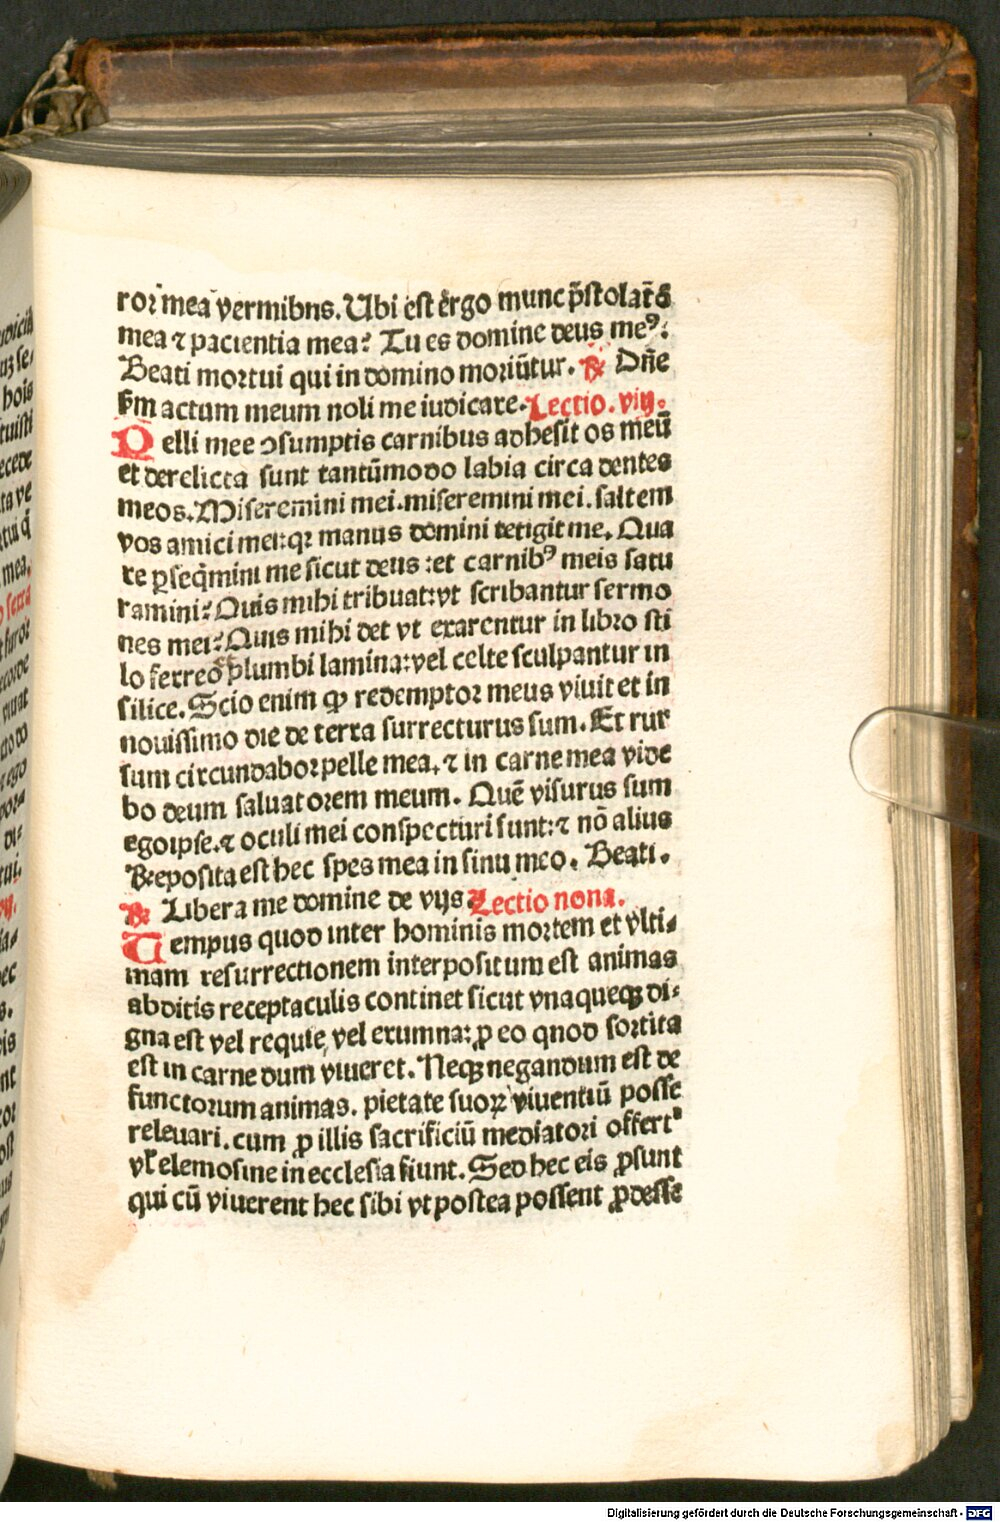 ror mea vermibns. Ubi est ergo nunc p̄stolat̄o
mea ⁊ pacientia mea? Tu es domine deus meꝰ:
Beati mortui qui in domino moriūtur. ℟ Dn̄e
ẜm actum meum noli me iudicare. Lectio. viij.
Pelli mee ↄsumptis carnibus adhesit os meū
et derelicta sunt tantūmodo labia circa dentes
meos. Miseremini mei. miseremini mei. saltem
vos amici mei: qꝛ manus domini tetigit me. Qua
re ꝑseq̄mini me sicut deus : et carnibꝰ meis satu
ramini? Quis mihi tribuat: vt scribantur sermo
nes mei? Quis mihi det vt exarentur in libro sti
lo ferreo et plumbi lamina: vel celte sculpantur in
silice. Scio enim ꝙ redemptor meus viuit et in
nouissimo die de terra surrecturus sum. Et rur
sum circundabor pelle mea. ⁊ in carne mea vide
bo deum saluatorem meum. Quē visurus sum
ego ipse. ⁊ oculi mei conspecturi sunt: ⁊ nō alius
Reposita est hec spes mea in sinu meo. Beati.
℟ Libera me domine de vijs. Lectio nona.
Tempus quod inter hominis mortem et vlti-
mam resurrectionem interpositum est animas
abditis receptaculis continet sicut vnaqueqꝫ di-
gna est vel requie, vel erumna: ꝓ eo quod sortita
est in carne dum viueret. Neqꝫ negandum est de
functorum animas. pietate suoꝝ viuentiū posse
releuari. cum ꝓ illis sacrificiū mediatori offert᷑
vl̓ elemosine in ecclesia fiunt. Sed hec eis ꝓsunt
qui cū viuerent hec sibi vt postea possent ꝓdesse
Digitalisierung gefördert durch die Deutsche Forschungsgemeinschaft - DFG